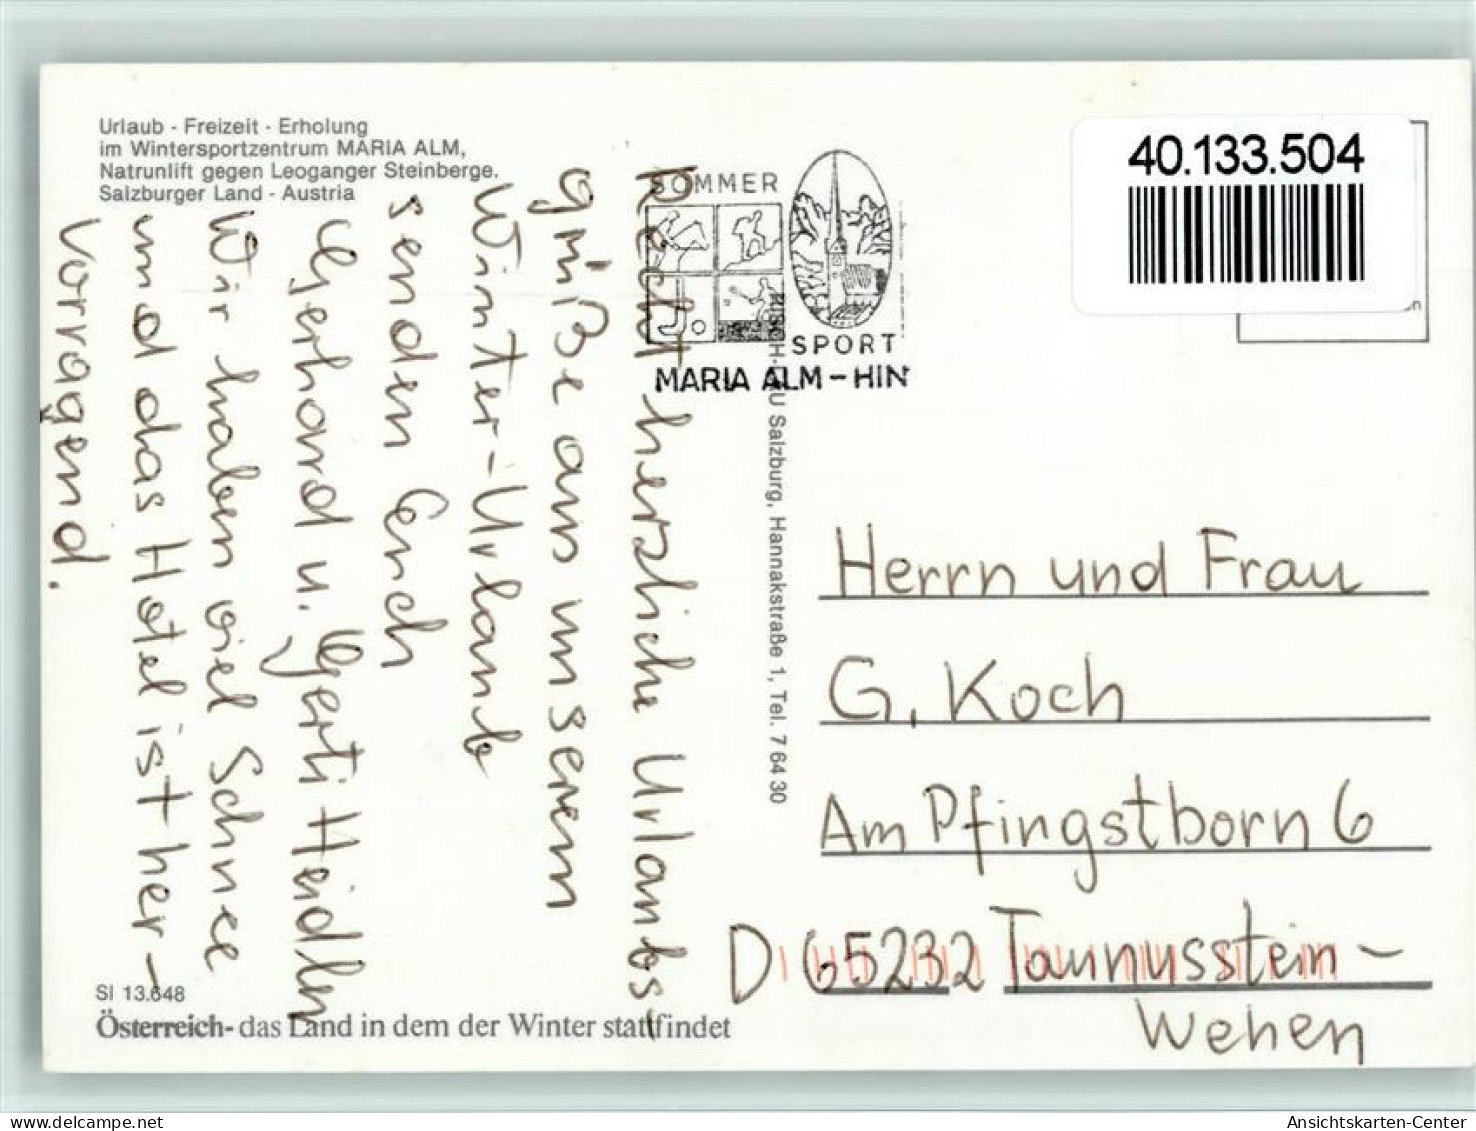 Urlaub - Freizeit - Erholung
im Wintersportzentrum MARIA ALM,
Natrunlift gegen Leoganger Steinberge.
Salzburger Land - Austria
Recht herzliche Urlaubs-
grüße aus unserem
Winter-Urlaub
senden Euch
Gerhard u. Gerti Heidler
Wir haben viel Schnee
und das Hotel ist her-
vorragend.
SI 13.648
Österreich- das Land in dem der Winter stattfindet
SOMMER
SPORT
MARIA ALM - HIN
Salzburg, Hannakstraße 1, Tel. 7 64 30
40.133.504
Herrn und Frau
G. Koch
Am Pfingstborn 6
D 65232 Taunusstein-
Wehen
delcampe.net
Ansichtskarten-Center